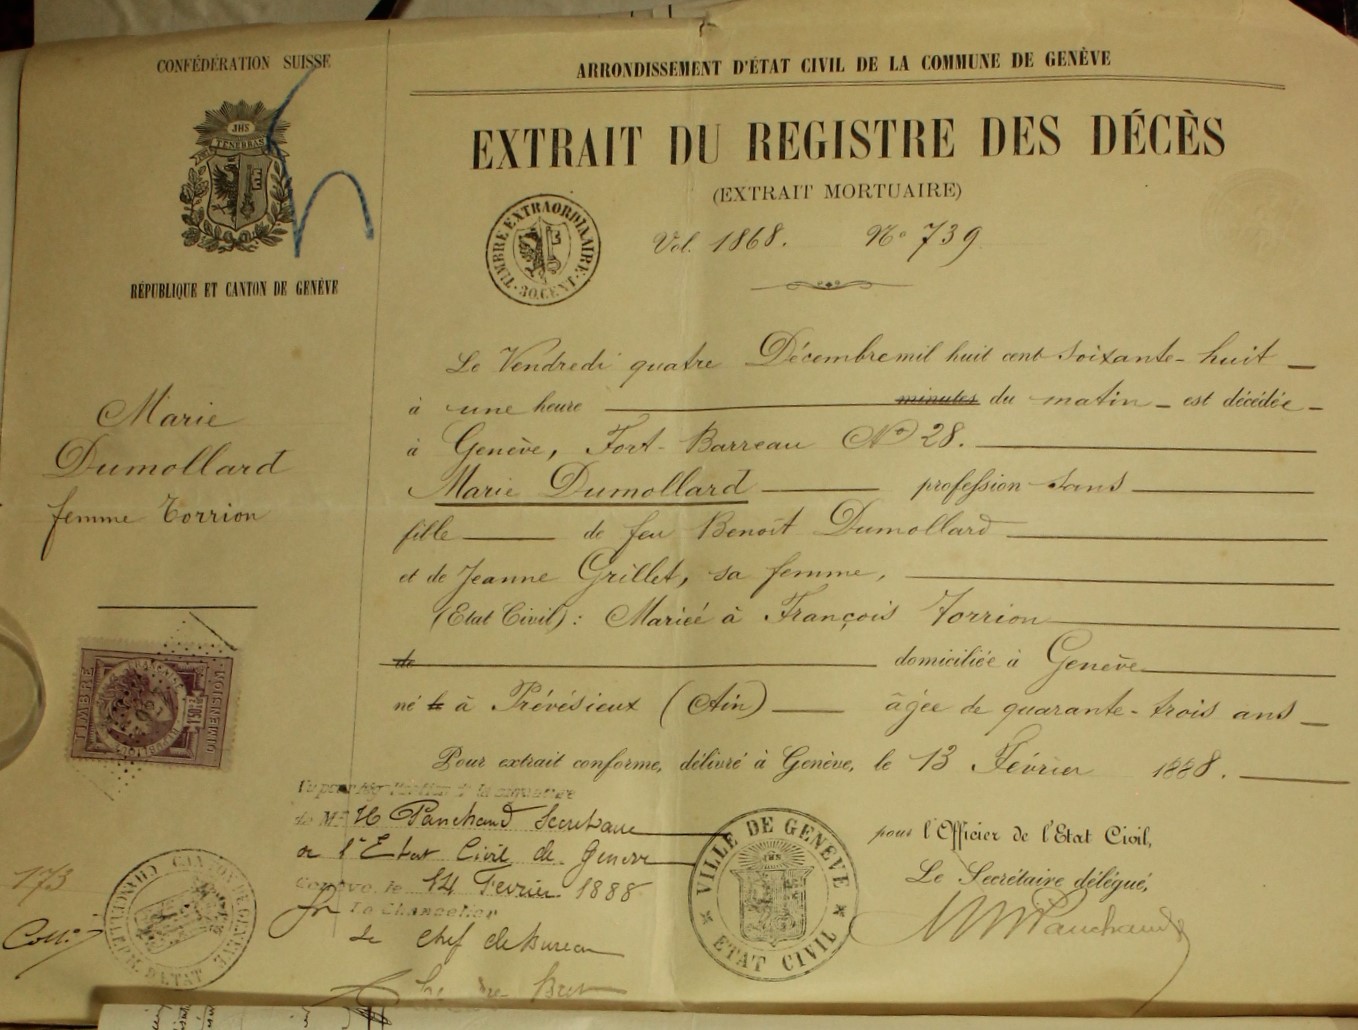 CONFÉDÉRATION SUISSE
JHS
TENEBRAS
RÉPUBLIQUE ET CANTON DE GENÈVE
Marie
Dumollard
femme Torrion
TIMBRE
DIMENSION
173
Coll.
ARRONDISSEMENT D'ÉTAT CIVIL DE LA COMMUNE DE GENÈVE
EXTRAIT DU REGISTRE DES DÉCÈS
(EXTRAIT MORTUAIRE)
TIMBRE EXTRAORDINAIRE
30. CENT.
Vol. 1868. No 739
Le Vendredi quatre Décembre mil huit cent soixante-huit
à une heure minutes du matin est décédée
à Genève, Fort-Barreau No 28.
Marie Dumollard profession sans
fille de feu Benoît Dumollard
et de Jeanne Grillet, sa femme,
(Etat Civil): Mariée à François Torrion
de domiciliée à Genève
né le à Prévésieux (Ain) âgée de quarante-trois ans
Pour extrait conforme, délivré à Genève, le 13 Février 1888.
Vu pour la signature
de Mr H Panchaud Secrétaire
de l'Etat Civil de Genève
Genève, le 14 Fevrier 1888
Le Chancelier
Le chef de Bureau
VILLE DE GENÈVE
ETAT CIVIL
pour l'Officier de l'Etat Civil,
Le Secrétaire délégué,
Panchaud